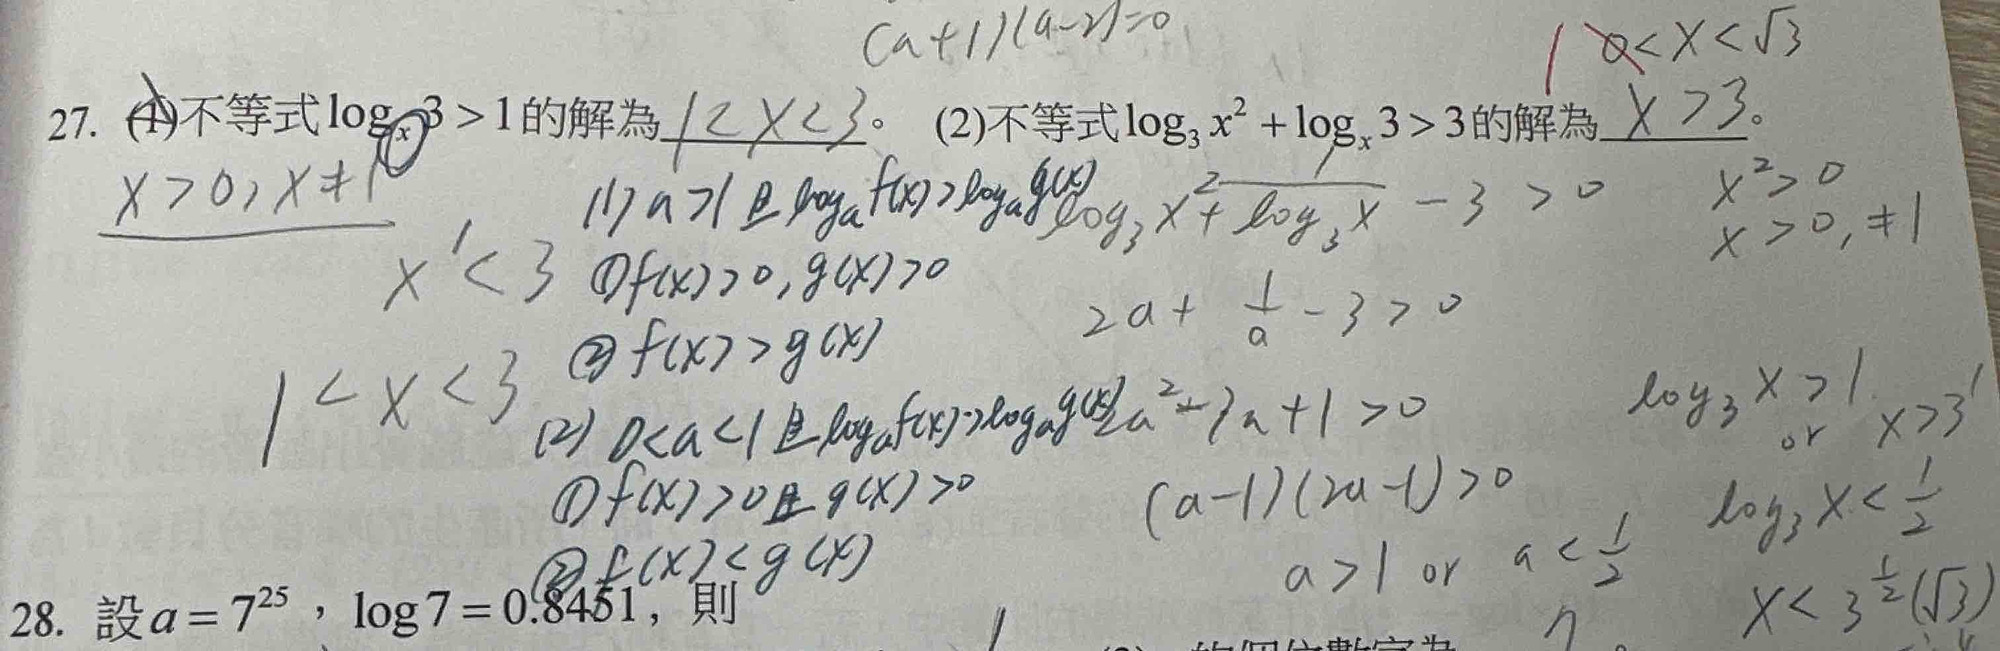 (a+1)(a-2)=0
1 0<x<√3
27. (1)不等式logₓ3>1的解為1<x<3。 (2)不等式log₃x²+logₓ3>3的解為x>3。
x>0, x≠1
x¹<3
1<x<3
(1) a>1且logₐf(x)>logₐg(x)
①f(x)>0, g(x)>0
②f(x)>g(x)
(2) 0<a<1且logₐf(x)>logₐg(x)
①f(x)>0且g(x)>0
②f(x)<g(x)
log₃x²+1/log₃x-3>0
2a+1/a-3>0
2a²-3a+1>0
(a-1)(2a-1)>0
a>1 or a<1/2
x²>0
x>0, ≠1
log₃x>1
or x>3¹
log₃x<1/2
x<3^(1/2)(√3)
28. 設a=7²⁵，log7=0.8451，則